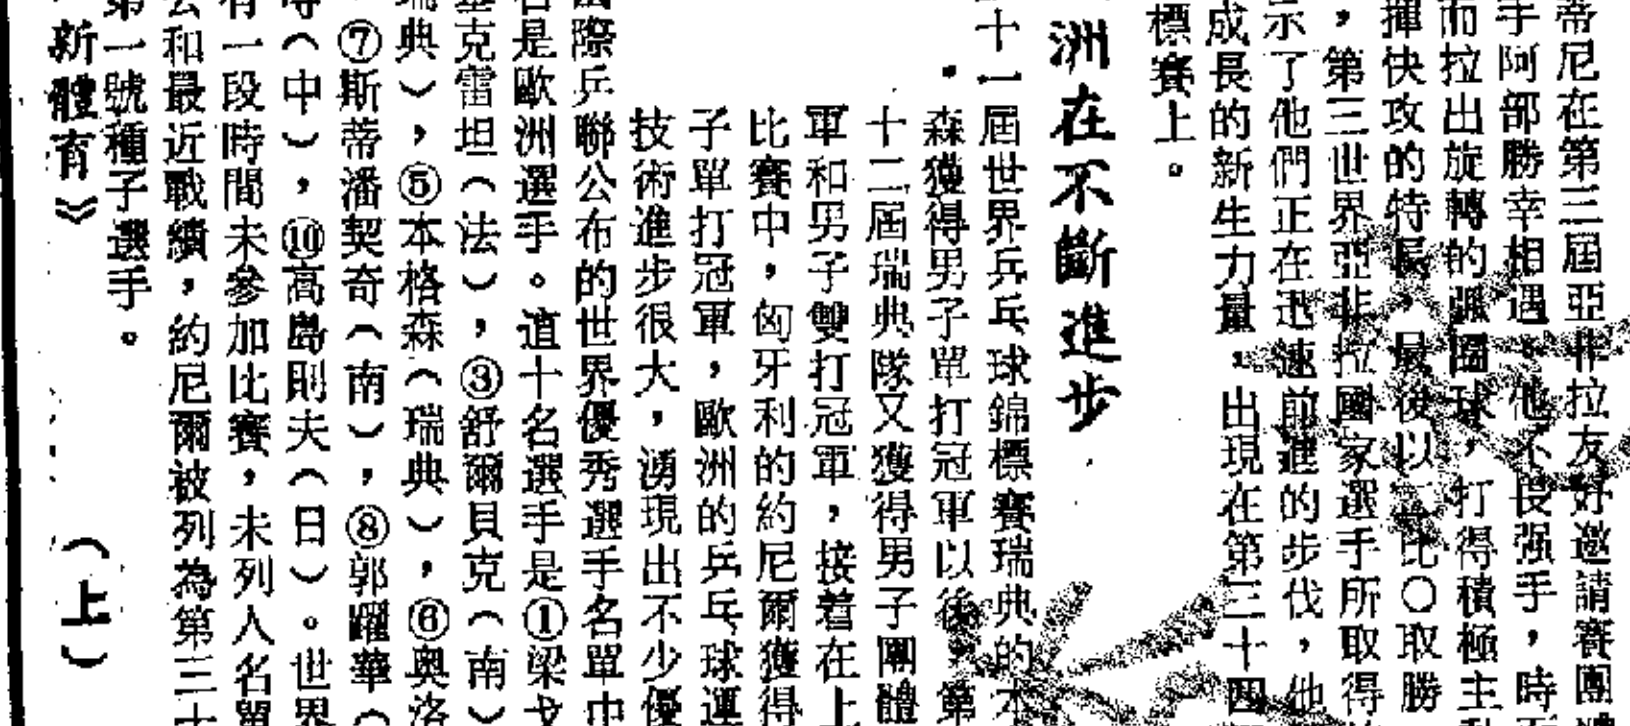 蒂尼在第三屆亞非拉友好邀請賽團
手阿部勝幸相遇。他不畏强手，時
而拉出旋轉的弧圈球，打得積極主
揮快攻的特長，最後以 比〇取勝
，第三世界亞非拉國家選手所取得
示了他們正在迅速前進的步伐，他
成長的新生力量，出現在第三十四
標賽上。
洲在不斷進步
十一屆世界乒乓球錦標賽瑞典的本
森獲得男子單打冠軍以後，第
十二屆瑞典隊又獲得男子團體
軍和男子雙打冠軍，接着在上
比賽中，匈牙利的約尼爾獲得
子單打冠軍，歐洲的乒乓球運
技術進步很大，湧現出不少優
際乒聯公布的世界優秀選手名單中
名是歐洲選手。這十名選手是①梁戈
克雷坦（法），③舒爾貝克（南）
瑞典），⑤本格森（瑞典），⑥奥洛
，⑦斯蒂潘契奇（南），⑧郭躍華（
（中），⑩高島則夫（日）。世界
有一段時間未參加比賽，未列入名單
公和最近戰績，約尼爾被列為第三十
第一號種子選手。
新體育》　（上）